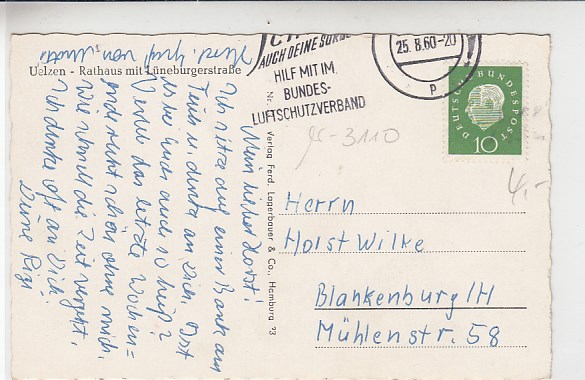 Uelzen - Rathaus mit Lüneburgerstraße
AUCH DEINE SORGE
HILF MIT IM
BUNDES-
LUFTSCHUTZVERBAND
25.8.60-20
P
DEUTSCHE BUNDESPOST
10
45-3110
4,-
Nr.
Verlag Ferd. Lagerbauer & Co., Hamburg 23
Mein lieber Horst!
Ich sitze auf einer Bank am
Teich u. denke an Dich. Ist
es bei Euch auch so heiß?
Verleb das letzte Wochen=
ende recht schön ohne mich.
Wie schnell die Zeit vergeht.
Ich denke oft an Dich.
Deine Rigi
Herzl. Gruß von
Herrn
Horst Wilke
Blankenburg/H
Mühlenstr. 58